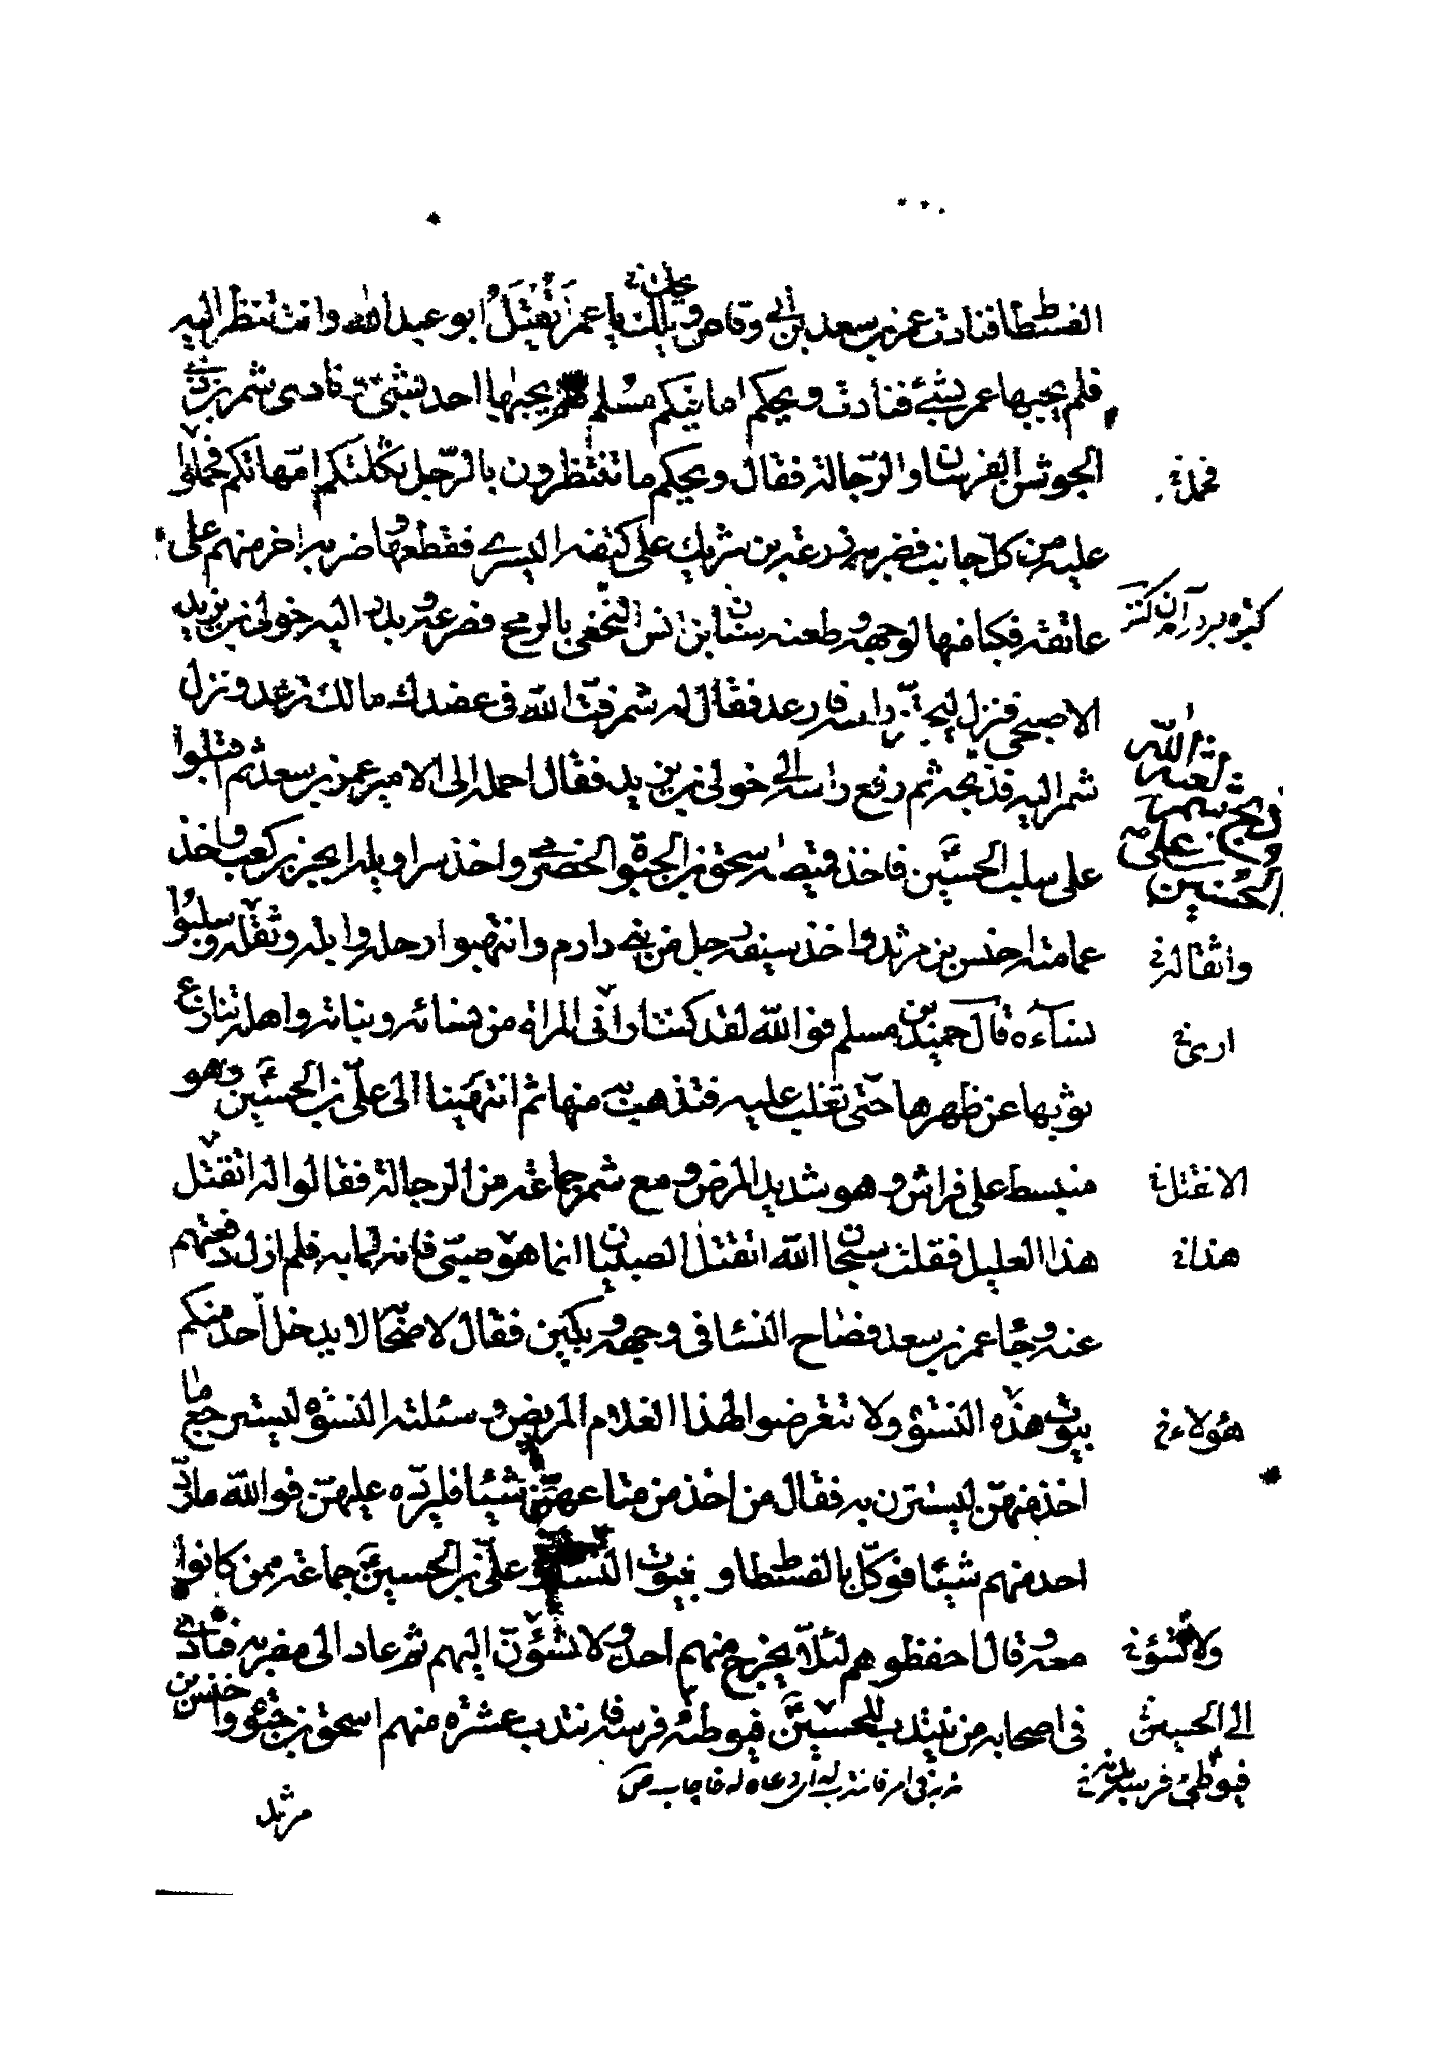 الفسطاط فنادت عمر بن سعد بن ابي وقاص ويلك يا عمر أيقتل ابو عبد الله وانت تنظر اليه
فلم يجبها عمر بشئ فنادت ويحكم اما فيكم مسلم فلم يجبها احد بشئ ونادى شمر بن ذي
الجوشن الفرسان والرجالة فقال ويحكم ما تنتظرون بالرجل ثكلتكم امهاتكم فحملوا
عليه من كل جانب فضربه زرعة بن شريك على كتفه اليسرى فقطعها وضربه اخر منهم على
عاتقه فكبا منها لوجهه وطعنه سنان بن انس النخعي بالرمح فصرعه وبدر اليه خولي بن يزيد
الاصبحي فنزل ليحتز راسه فارعد فقال له شمر فت الله في عضدك مالك ترعد ونزل
شمر اليه فذبحه ثم رفع راسه الى خولي بن يزيد فقال احمله الى الامير عمر بن سعد ثم اقبلوا
على سلب الحسين فاخذ قميصه اسحق بن الحيوة الحضرمي واخذ سراويله ابجر بن كعب واخذ
عمامته اخنس بن مرثد واخذ سيفه رجل من بني دارم وانتهبوا رحله وابله وثقله وسلبوا
نساءه قال حميد بن مسلم فوالله لقد كنت ارى المراة من نسائه وبناته واهله تنازع
ثوبها عن ظهرها حتى تغلب عليه فتذهب به منها ثم انتهينا الى علي بن الحسين وهو
منبسط على فراش وهو شديد المرض ومع شمر جماعة من الرجالة فقالوا له اتقتل
هذا العليل فقلت سبحان الله اتقتل الصبيان انما هو صبي فانه لما به فلم ازل دفعتهم
عنه وجاء عمر بن سعد فصاح النساء في وجهه وبكين فقال لاصحابه لا يدخل احد منكم
بيوت هذه النسوة ولا تتعرضوا لهذا الغلام المريض وسئلته النسوة ليسترجع ما
اخذ منهن ليستترن به فقال من اخذ من متاعهن شيئا فليرده عليهن فوالله ما رد
احد منهم شيئا فوكل بالفسطاط وبيوت النساء وعلي بن الحسين جماعة ممن كانوا
معه وقال احفظوهم لئلا يخرج منهم احد ولا تسؤن اليهم ثم عاد الى مضربه فنادى
في اصحابه من ينتدب للحسين فيوطئه فرسه فانتدب عشرة منهم اسحق بن حيوة واخنس بن
مرثد
فحملة
لعنة الله
ذبح شمر
على
الحسين
واثقاله
ارى
الا تقتل
هذا
هؤلاء
ولا تسؤ
الى الحسين
فيوطئ فرسه